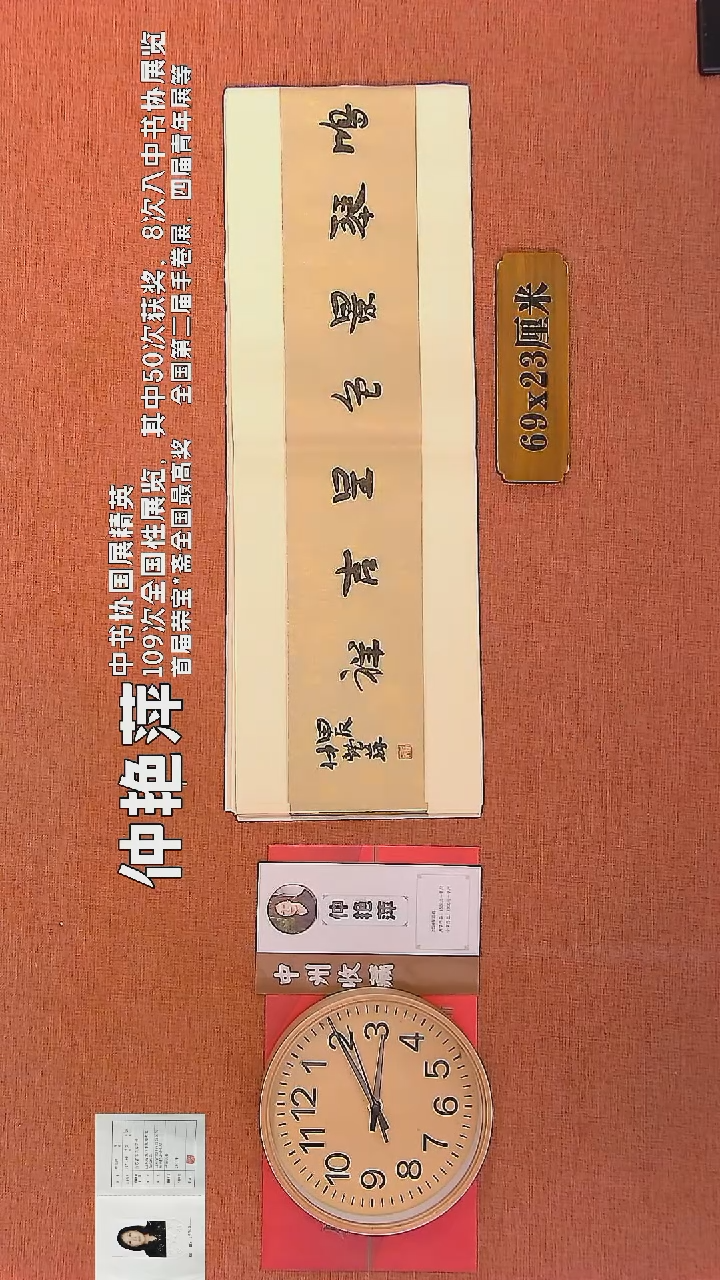 仲艳萍
中书协国展精英
109次全国性展览，其中50次获奖，8次入中书协展览
首届荣宝*斋全国最高奖 全国第二届手卷展、四届青年展等
鸣琴景色呈吉祥
69x23厘米
仲艳萍
中州收藏
12
1
2
3
4
5
6
7
8
9
10
11